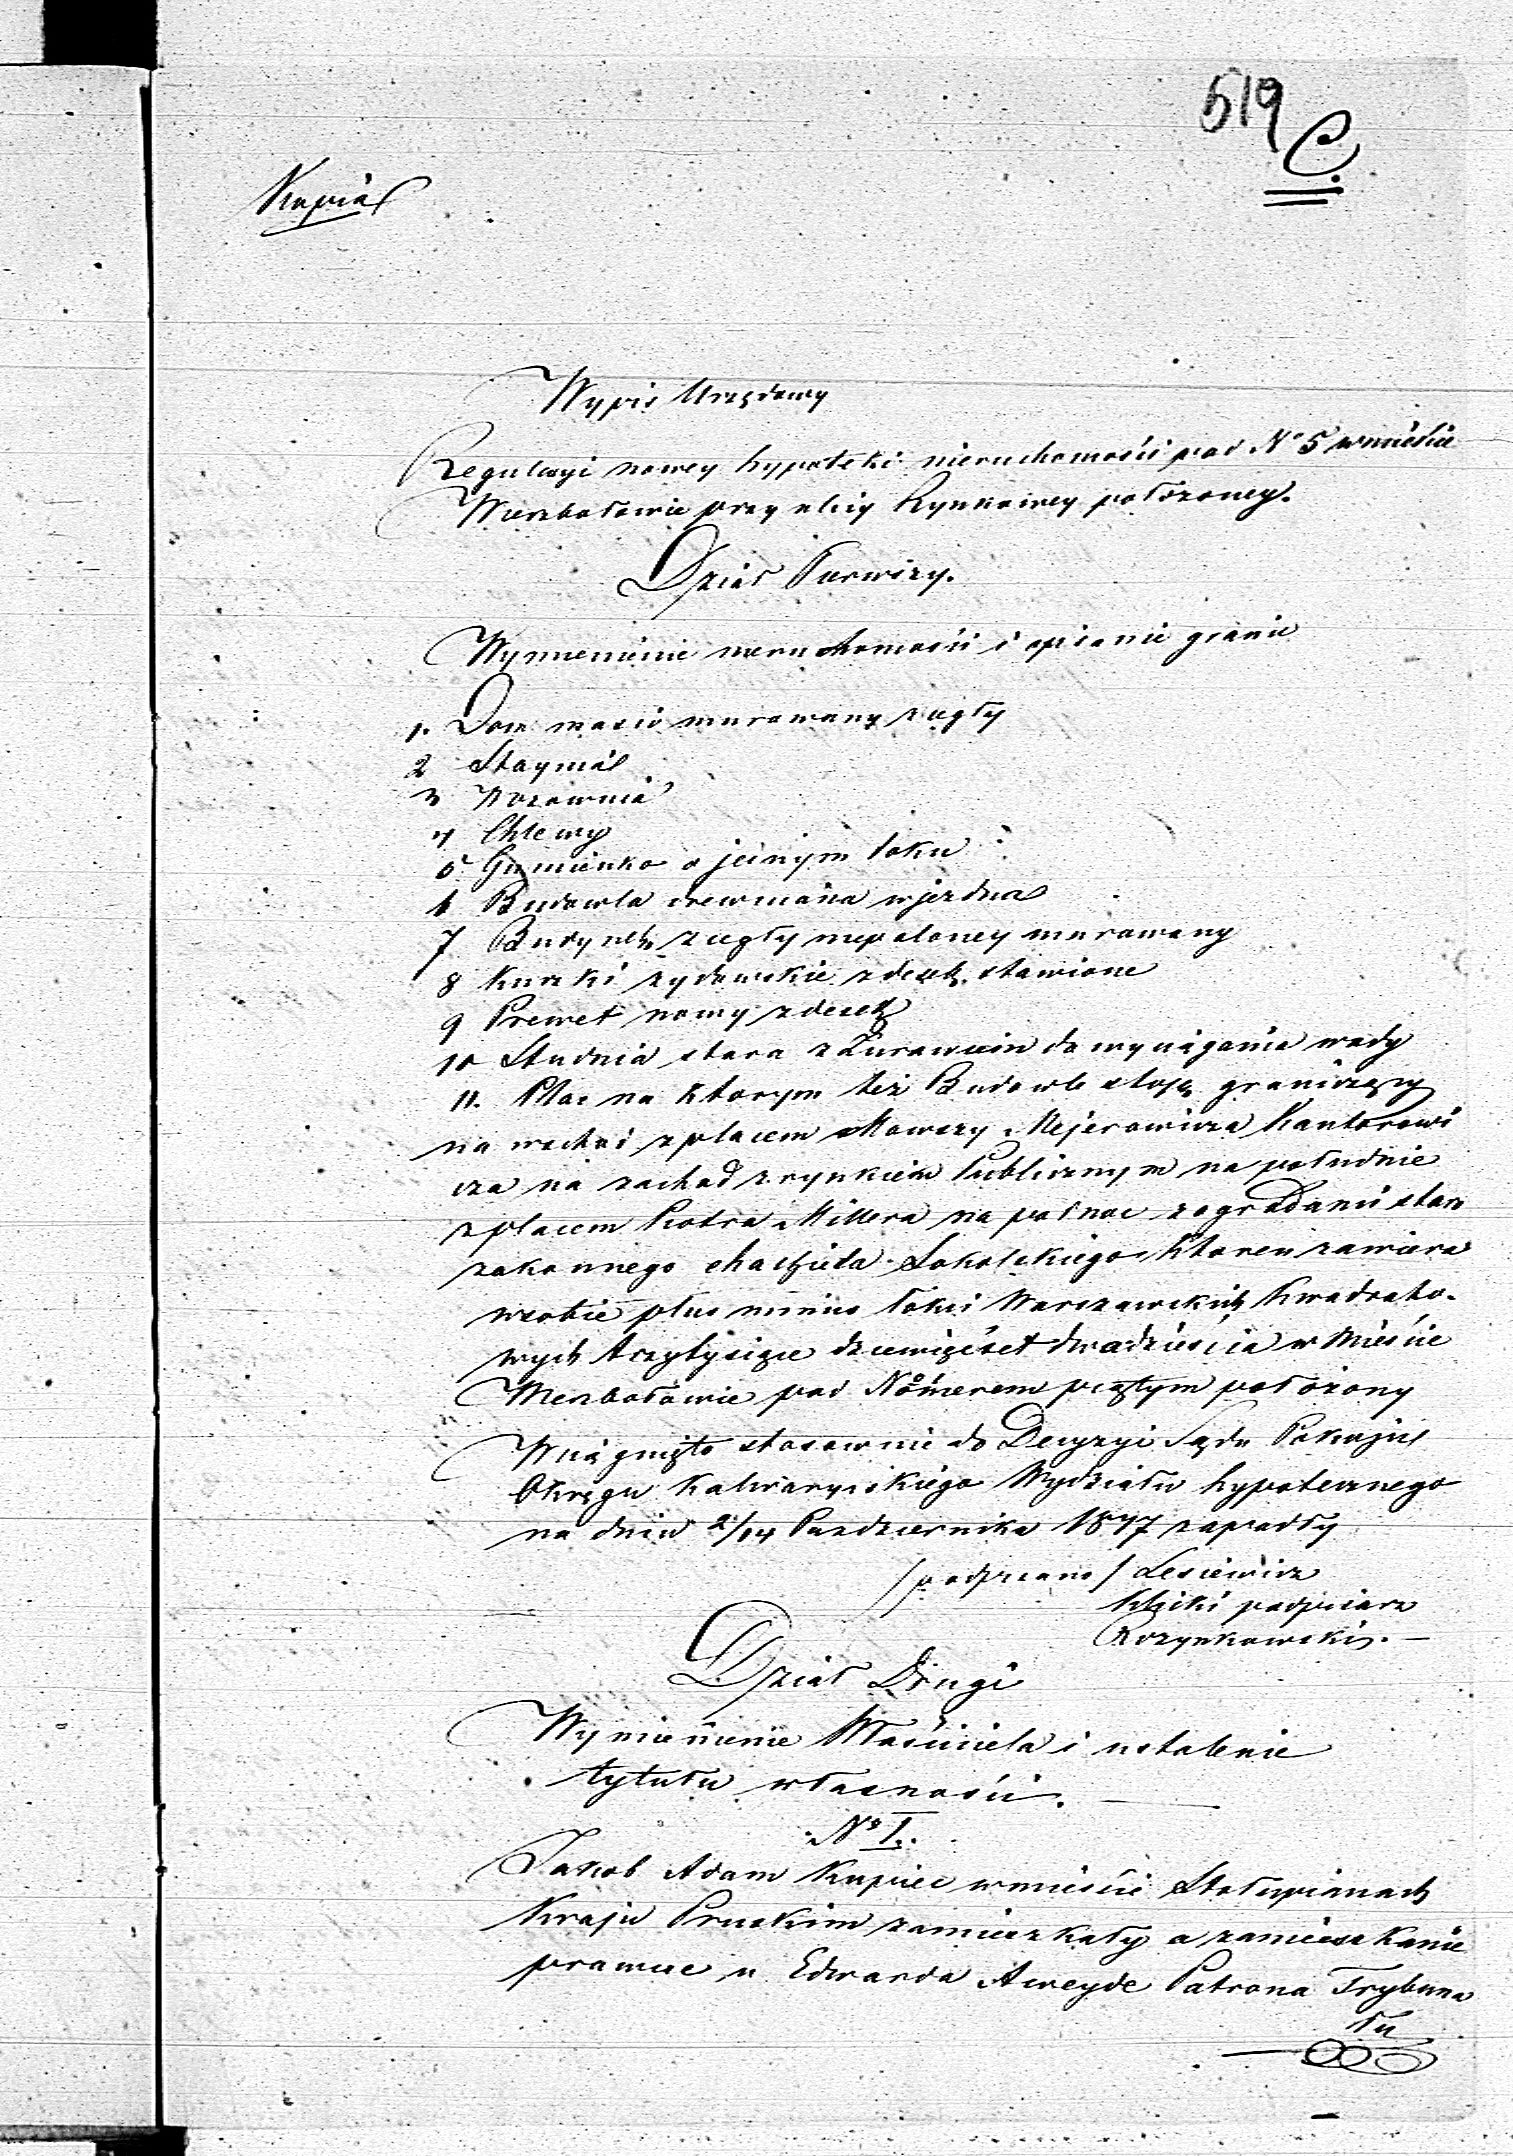 519
C.
Kopia
Wypis Urzędowy
Regulacyi nowey hypoteki nieruchomości pod No 5 w mieście
Wierzbołowie przy ulicy Rynkowey położoney.
Dział Pierwszy.
Wymienienie nieruchomości i opisanie granic
1. Dom masiv murowany z cegły
2 Staynia
3 Wozownia
4 Chlewy
5 Gumienko o jednym toku
6 Budowla drewniana wjezdna
7 Budynek z cegły niepaloney murowany
8 Kuczki żydowskie z desek stawione
9 Prewet nowy z desek
10 Studnia stara z Żurawiem do wyciągania wody
11. Plac na którym też Budowle stoją graniczący
na wschód z placem Mowszy Mejerowicza Kantorowi
cza na zachod z rynkiem Publicznym na południe
z placem Piotra Millera na połnoc z ogrodami star
zakonnego Sokolskiego którem zawiera
w sobie plus minus łokci Warszawskich kwadrato-
wych trzytysiące dziewięćset dwadzieścia w Mieście
Wierzbołowie pod Nomerem piątym położony
Wciągnięto stosownie do Decyzyi Sądu Pokoju
Okręgu Kalwaryiskiego Wydziału hypotecznego
na dniu 2/14 Pazdziernika 1847 zapadły
/podpisano/ Lesiewicz
podpisarz
Rożynkowski. —
Dział Drugi
Wymienienie Właściciela i ustalenie
tytułu własności. —
No I.
Jakob Adam Kupiec w mieście Stołupianach
Kraju Pruskim zamieszkały a zamieszkanie
prawne u Edwarda Aweyde Patrona Trybuna
łu